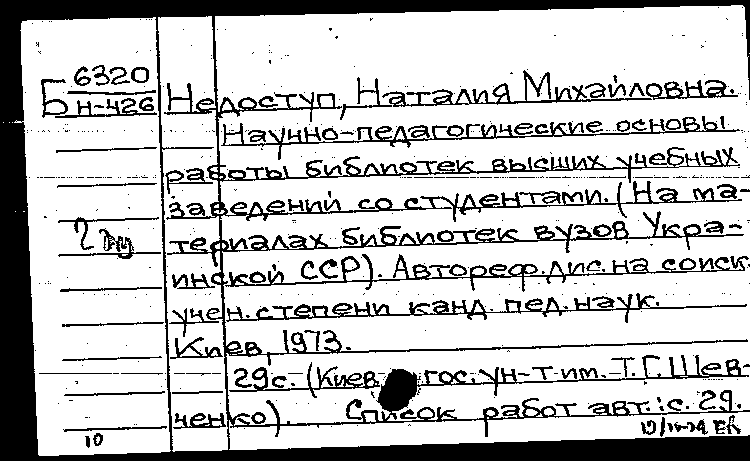 Б 6320
Н-426
Недоступ, Наталия Михайловна.
Научно-педагогические основы
работы библиотек высших учебных
заведений со студентами. (На ма-
териалах библиотек вузов Укра-
инской ССР). Автореф. дис. на соиск.
учен. степени канд. пед. наук.
Киев, 1973.
29с. (Киев гос. ун-т им. Т.Г. Шев-
ченко). Список работ авт.: с. 29.
10